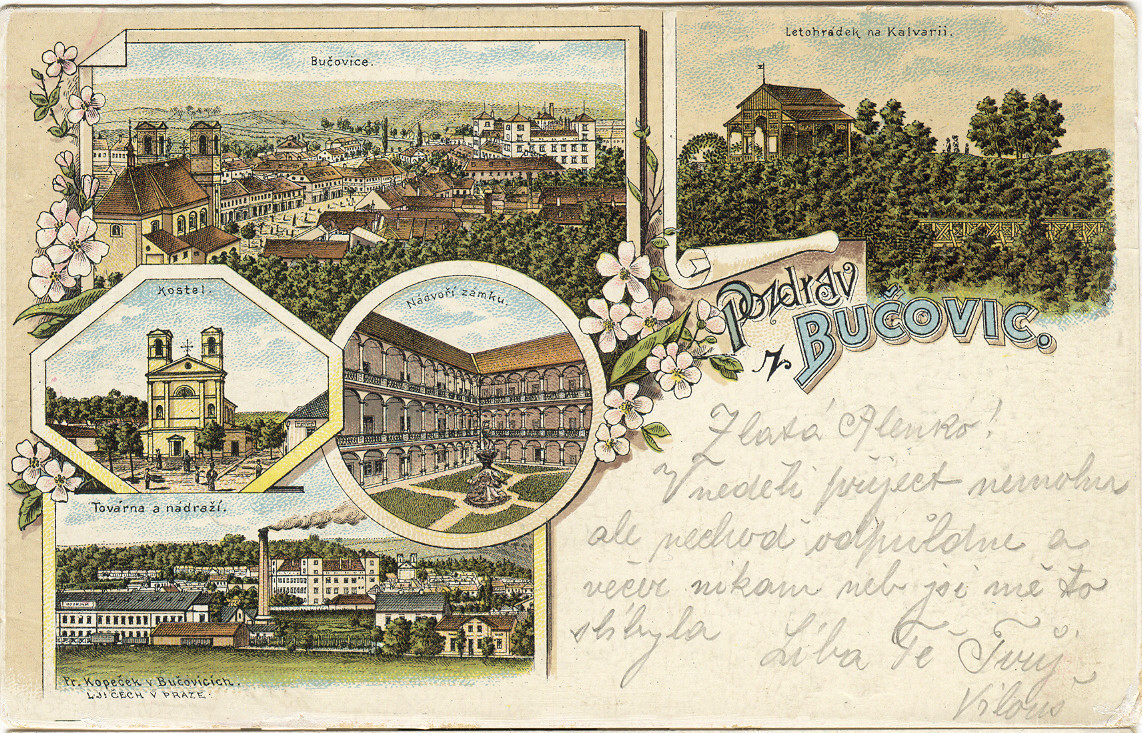 Bučovice.
Letohrádek na Kalvarii.
Pozdrav
z BUČOVIC.
Kostel.
Nádvoří zámku.
Továrna a nádraží.
Fr. Kopeček v Bučovicích.
L.JIČECH V PRAZE.
Zlatá Alenko!
V neděli přiject nemohu
ale nechoď odpůldne a
večer nikam neb jsi mě to
slíbyla Líba Te Tvůj